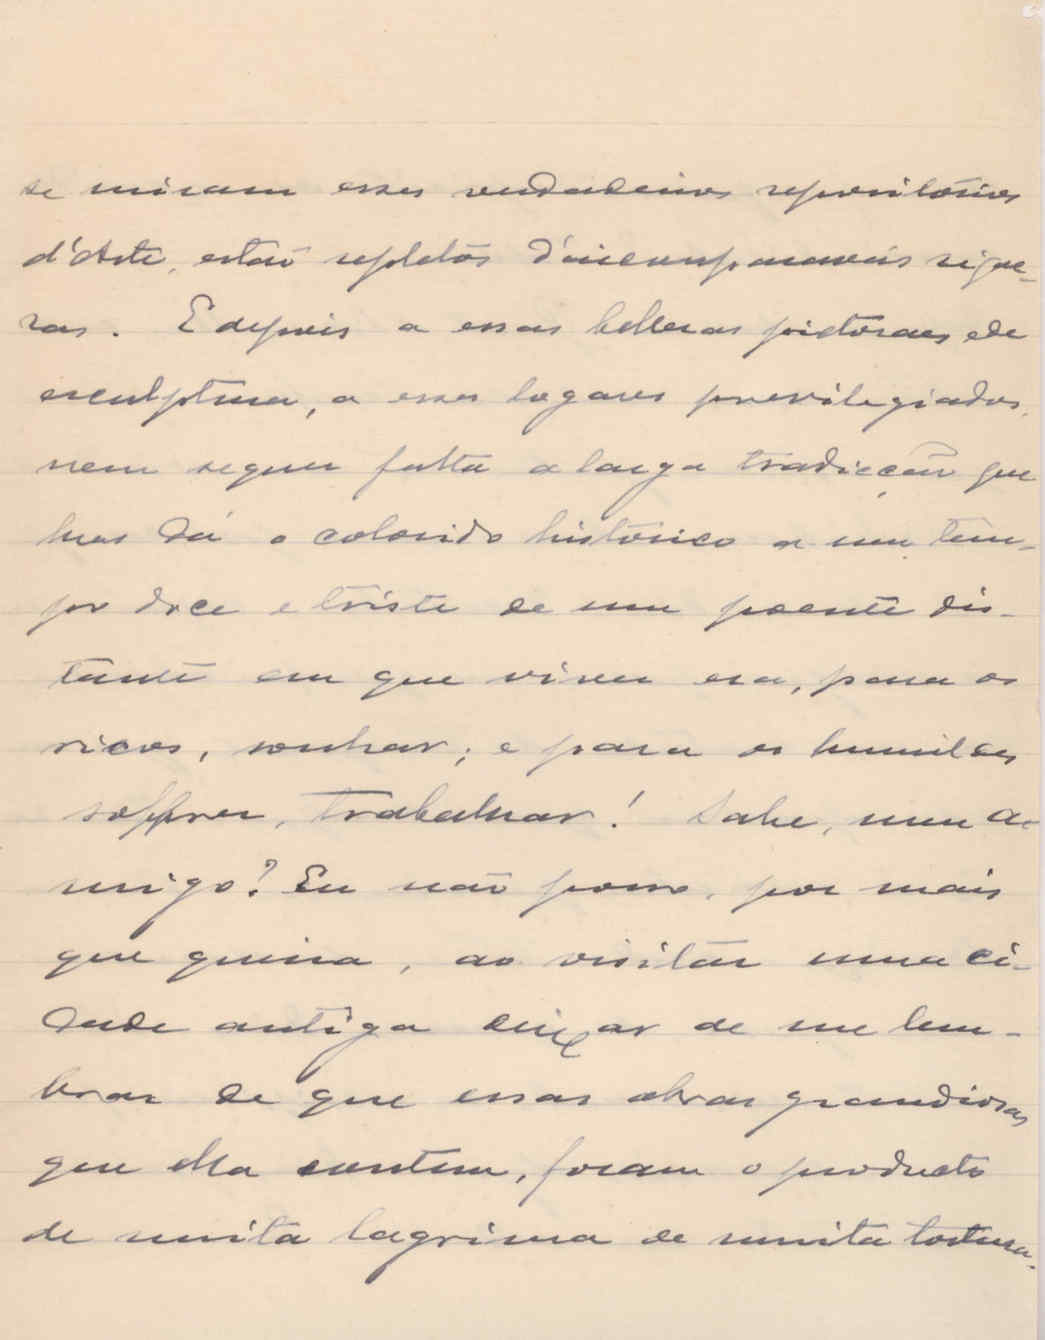 se miram esses verdadeiros repositórios
d'Arte, estão repletos d'incomparaveis rique-
zas. E depois a essas bellezas pictoraes e de
esculptura, a esses logares previlegiados,
nem sequer falta a larga tradicção que
lhes dá o colorido histórico a um tem-
po doce e triste de um poente dis-
tante em que viver era, para os
ricos, sonhar; e para os humildes
soffrer, trabalhar! Sabe, meu a-
migo? Eu não posso, por mais
que queira, ao visitar uma ci-
dade antiga deixar de me lem-
brar de que essas obras grandiosas
que ella contem, foram o producto
de muita lagrima de muita tortura.